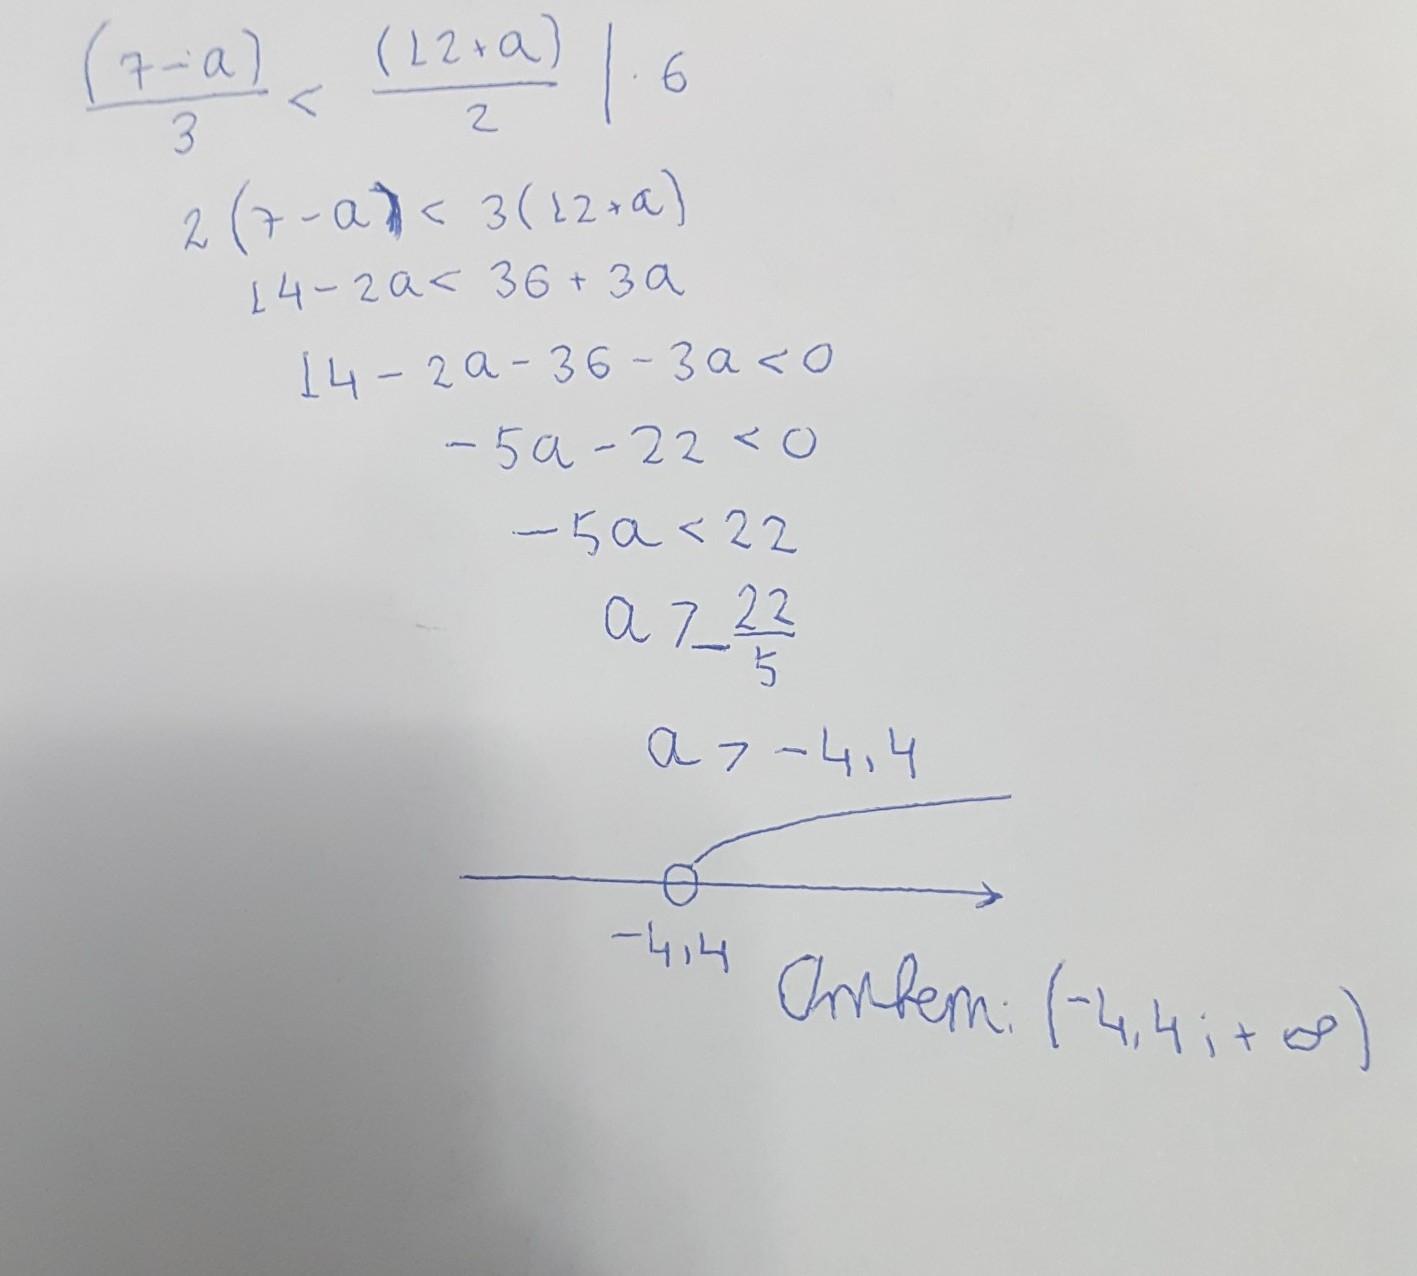 (7-a)/3 < (12+a)/2 | · 6
2(7-a) < 3(12+a)
14-2a < 36+3a
14-2a-36-3a<0
-5a-22<0
-5a<22
a>-22/5
a>-4,4
-4,4
Ответ: (-4,4;+∞)